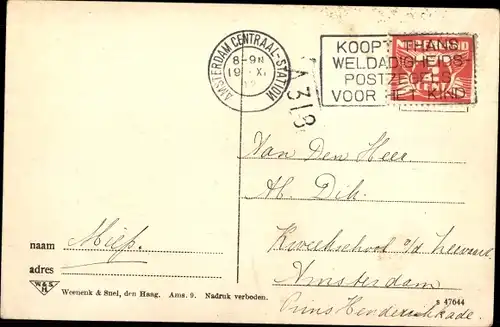 AMSTERDAM CENTRAAL-STATION
8-9N
19 XI
KOOPT THANS
WELDADIGHEIDS
POSTZEGELS
VOOR HET KIND
NEDERLAND
CENT
A 318
Van Den Heer
Ab. Dik.
Kweekschool o/d
Amsterdam
Prins Hendrikkade.
naam Miep.
adres
W & S
H
Weenenk & Snel, den Haag. Ams. 9. Nadruk verboden.
s 47644